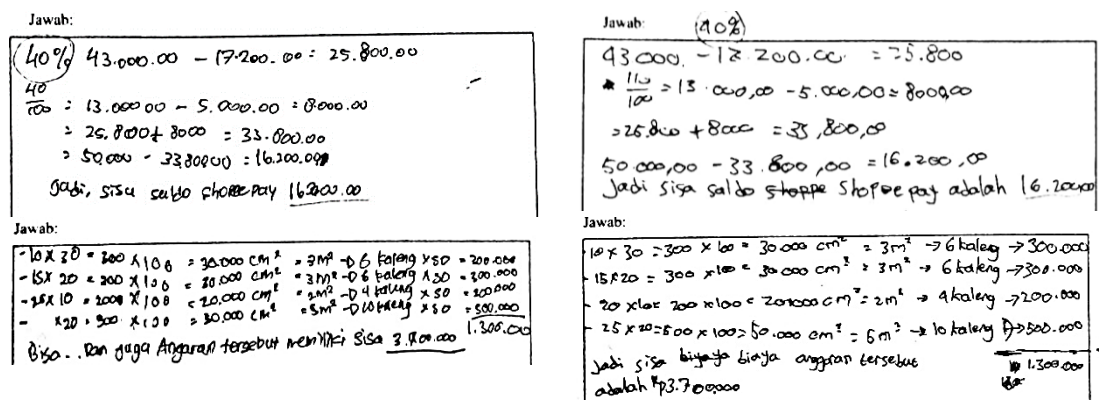 Jawab:
40% 43.000.00 - 17.200.00 = 25.800.00
40/100 = 13.000 00 - 5.000.00 = 8000.00
= 25.800 + 8000 = 33.800.00
= 50,000 - 33,80000 = 16.200.00
Jadi, sisa saldo shopee pay 16200.00
Jawab:
40%
43000. - 17.200.00 = 25.800
110/100 = 13.000,00 - 5.000,00 = 8000,00
= 25.800 + 8000 = 33,800,00
50.000,00 - 33.800,00 = 16.200,00
Jadi sisa saldo shoppe Shopee pay adalah 16.200,00
Jawab:
- 10 x 30 = 300 x 100 = 30.000 cm² = 3m² -D 6 kaleng x 50 = 300.000
- 15 x 20 = 300 x 100 = 30.000 cm² = 3m² -D 6 kaleng x 50 = 300.000
- 25 x 10 = 2000 x 100 = 20,000 cm² = 2m² -D 4 kaleng x 50 = 200.000
- x 20 = 500 x 100 = 50.000 cm² = 5m² -D 10 kaleng x 50 = 500.000
1.300.000
Bisa.. Dan juga Angaran tersebut memiliki Sisa 3.700.000
Jawab:
- 10 x 30 = 300 x 100 = 30 000 cm² = 3m² → 6 kaleng → 300.000
- 15 x 20 = 300 x 100 = 30 000 cm² = 3m² → 6 kaleng → 300.000
- 20 x 10 = 200 x 100 = 20.000 cm² = 2m² → 4 kaleng → 200.000
- 25 x 20 = 500 x 100 = 50.000 cm² = 5m² → 10 kaleng → 500.000
Jadi sisa biaya anggaran tersebut
1.300.000
adalah Rp3.700.000